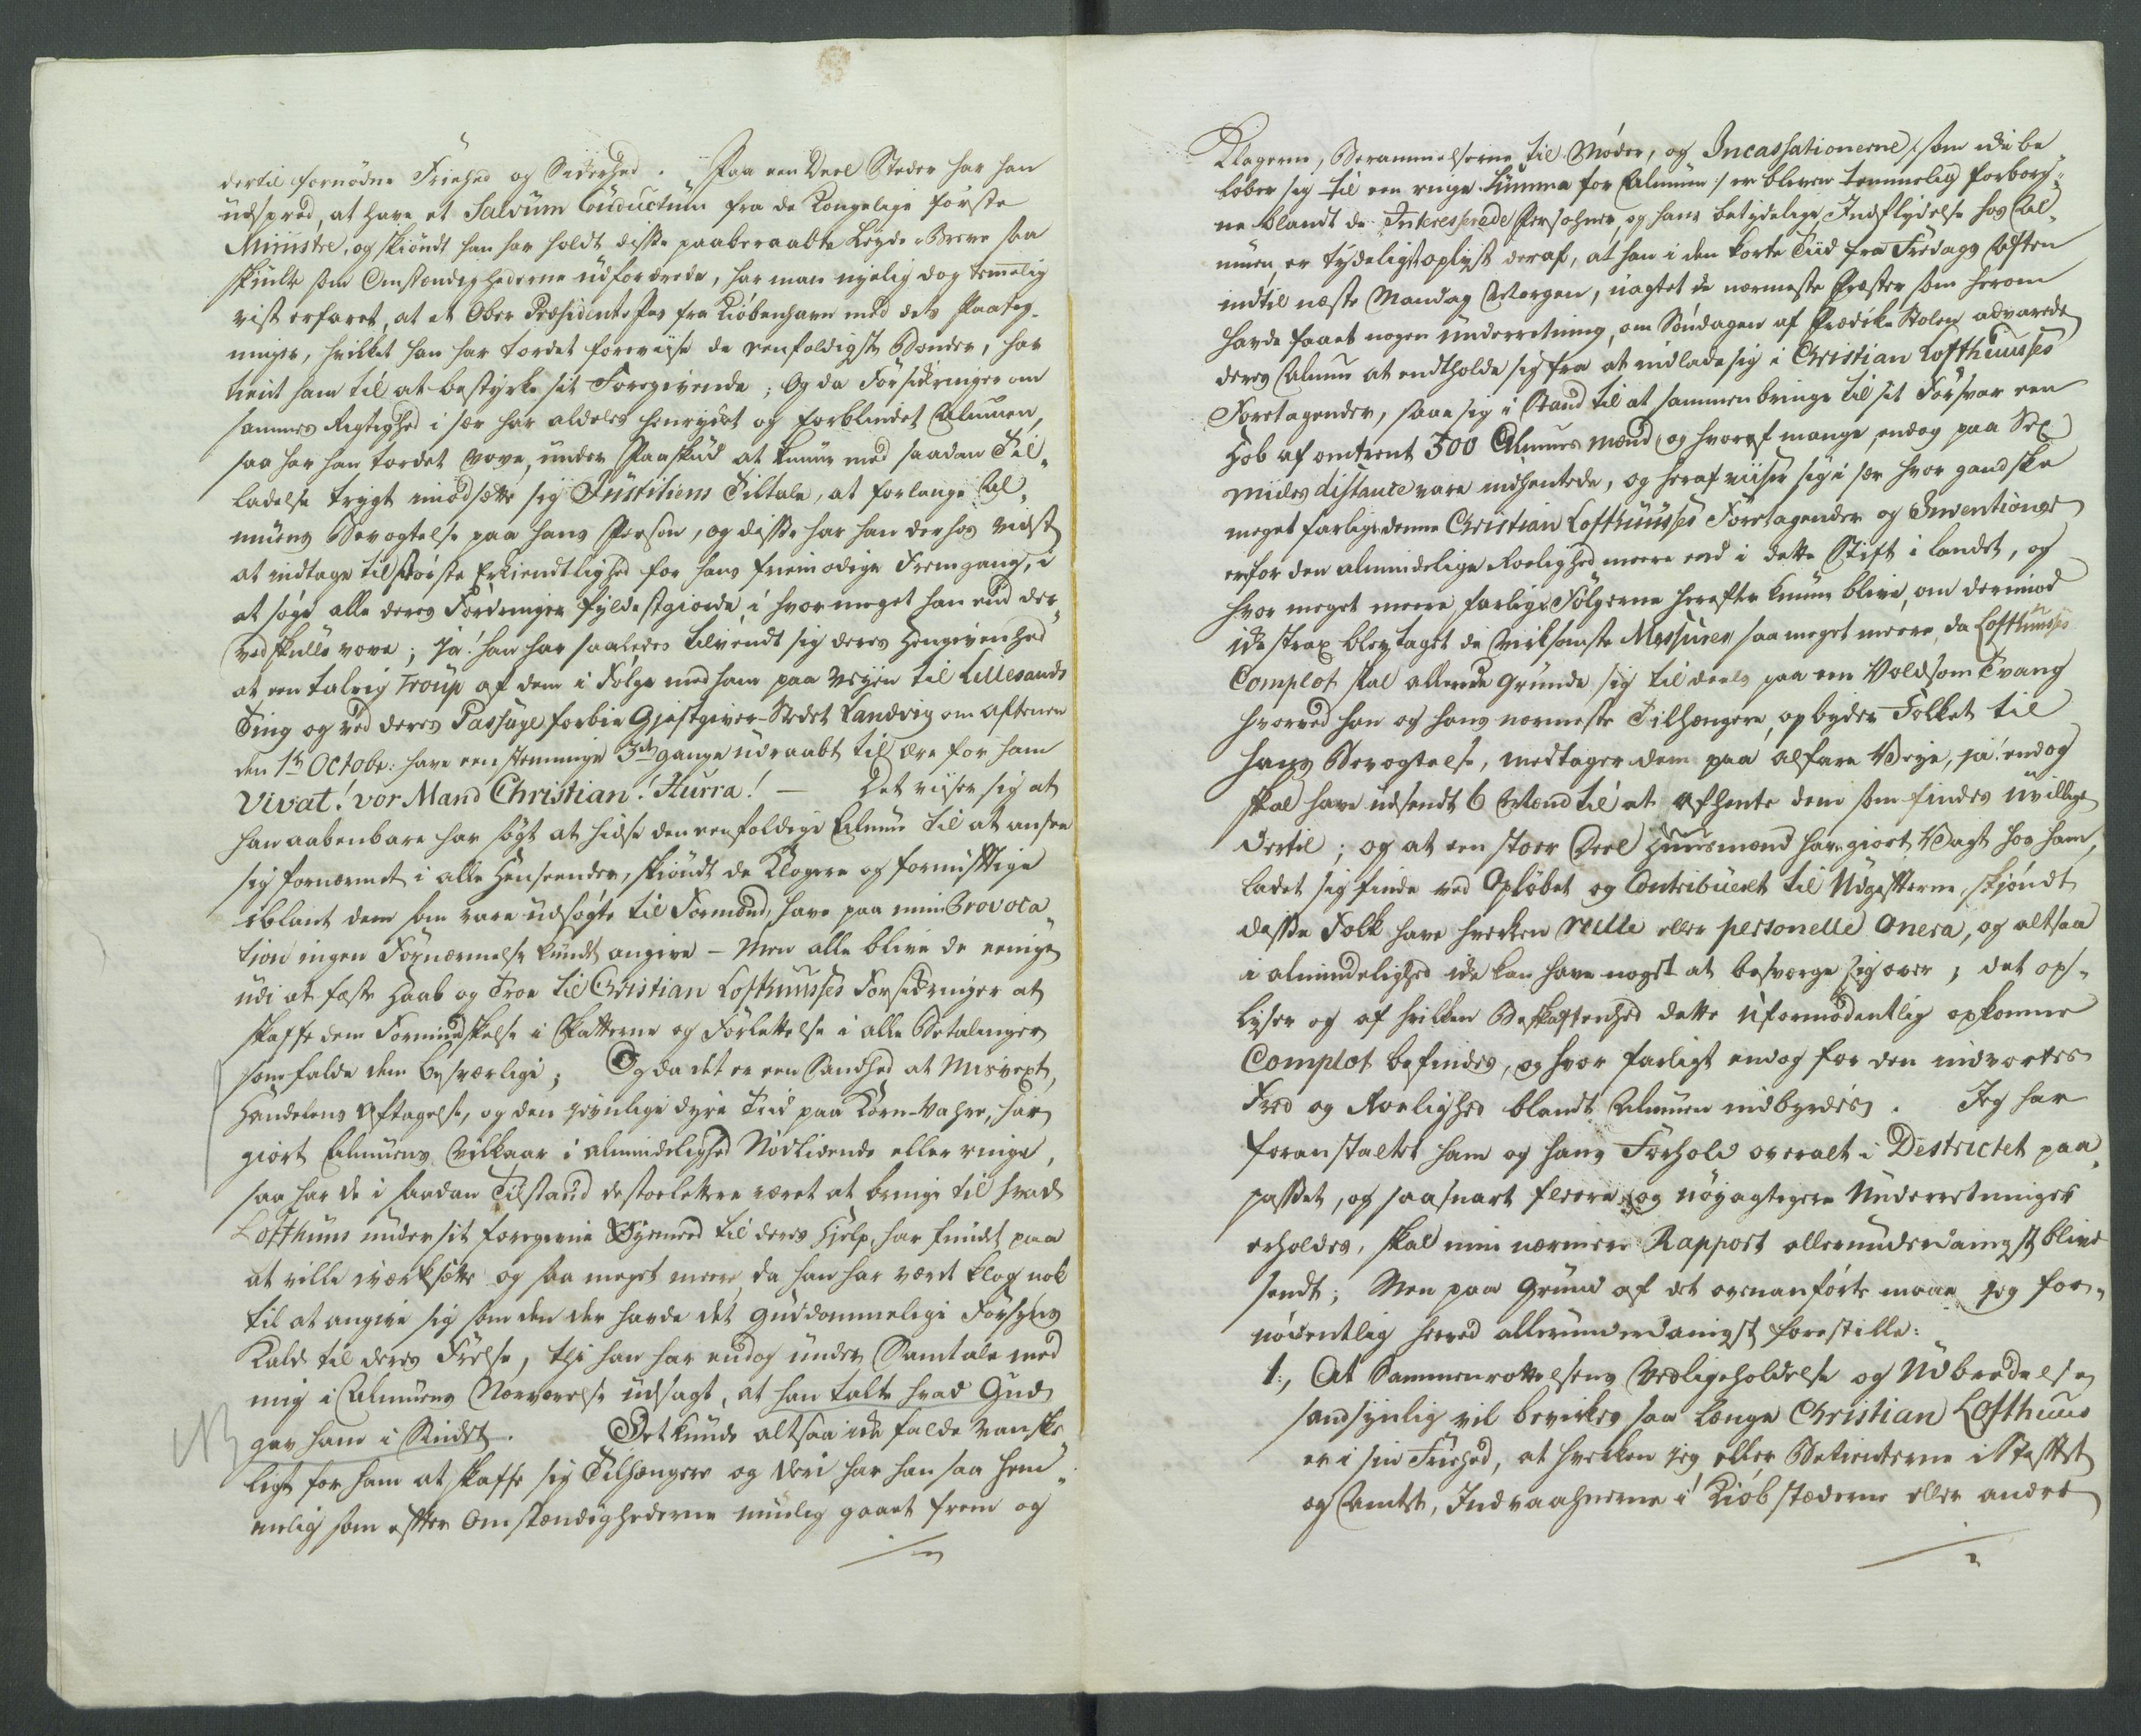 dertil fornödne Friehed og Sikerhed. Paa een Deel Steder har han
udspred, at have et Salvum Conductum fra de Kongelige første
Ministre, og skiöndt han har holdt disse paaberaabte Leyde-Breve saa
skiulte som Omstændighederne udfordrede, har man nyelig dog temelig
vist erfaret, at et Ober Præsidents Pas fra Kiöbenhavn med dets Paateg-
ninger, hvilket han har tordet foreviise de eenfoldigste Bönder, har
tient ham til at bestyrke sit Foregivende; Og da Forsikringer om
sammes Rigtighed i sær har aldeles henrycket og forblindet Almuen,
saa har han tordet vove, under Paaskud at kunne med saadan Til-
ladelse trygt imodsætte sig Justitiens Tiltale, at forlange Al-
muens Bevogtelse paa hans Person, og disse har han derhos vidst
at indtage til störste Erkiendtlighed for hans friemodige Fremgang, i
at söge alle deres Fordringer fyldestgiorde, i hvor meget han end der-
ved skulle vove; Ja! han har saaledes tilvendt sig deres Hengivenhed
at een talrig Troup af dem i Fölge med ham paa Veyen til Lillesands
Ting og ved deres Passage forbie Gjæstgiver-Stedet Landvig om aftenen
den 1te Octobr: have eenstemmige 3de gange udraabt til ære for ham
Vivat! vor Mand Christian! Hurra! — Det viiser sig at
han aabenbare har sögt at hidse den eenfoldige Almue til at ansee
sig fornærmet i alle Henseender, skiöndt de Klogere og fornufftige
iblant dem som vare udsögte til Formænd, have paa min Provoca-
tion ingen Fornærmelse kundt angive — Men alle blive de eenige
udi at fæste Haab og Troe til Christian Lofthuuses Forsikringer at
skaffe dem Formindskelse i Skatterne og Forlettelse i alle Betalinger
som falde dem besværlige; Og da det er een Sandhed at Misvext,
Handelens Aftagelse, og den jævnlige dyre Tiid paa Korn-Vahre, har
giort Almuens Vilkaar i almindelighed Nödlidende eller ringe,
saa har de i saadan Tilstand destoelettere været at bringe til hvad
Lofthuus under sit foregivne Öyemeed til deres Hjelp, har fundt paa
at ville iværksætte og saa meget meere, da han har været klog nok
til at angive sig som den der havde det guddommelige Forsyns
Kald til deres Frelse, thi han har endog under Samtale med
mig i Almuens Nærværelse udsagt, at han talte hvad Gud
gav ham i Sindet. Det kunde altsaa ikke falde vanske-
ligt for ham at skaffe sig Tilhængere og deri har han saa hem-
melig som efter Omstændighederne muelig gaaet frem og
Klagerne, Berammelserne til Möder, og Incassationerne /: som ikke be
löber sig til een ringe Summa for Almuen :/ er bleven temmelig forborg-
ne blandt de Interesserede Persohner, og hans betydelige Indflydelse hos Al-
muen, er tydeligst oplyst deraf, at han i den korte Tiid fra Fredags Aften
indtil næste Mandag Morgen, uagtet de nærmeste Præster som herom
havde faaet nogen Underretning, om Söndagen af Prædike Stolen advarede
deres Almue at endtholde sig fra at indlade sig i Christian Lofthuuses
Foretagender, saae sig i Stand til at sammenbringe til sit Forsvar een
Hob af omtrent 300 Almues mænd og hvoraf mange, endog paa Sex
Miiles distance vare indhentede, og heraf viiser sig i sær hvor gandske
meget farlige denne Christian Lofthuuses Foretagender og Inventioner
er for den almindelige Roelighed meere end i dette Stift i landet, og
hvor meget meere farlige Fölgerne herefter kunne blive, om derimod
ikke strax blev taget de virksomste Messures, saa meget meere, da Lofthuuses
Complot skal allerede grunde sig til deels paa een Voldsom Tvang
hvorved han og hans nærmeste Tilhængere, opbyder Folket til
hans Bevogtelse, medtager dem paa alfare Veye, ja! endog
skal have udsendt 6 Mænd til at afhente dem som findes uvillige
dertil; og at een stoer Deel Huusmænd have giort Vagt hos ham,
ladet sig finde ved Oplöbet og Contribueret til Udgifterne, skjöndt
disse Folk have hverken reelle eller personelle Onera, og altsaa
i almindelighed ikke kan have noget at besværge sig over; det op-
lyser og af hvilken Beskaffenhed dette uformodentlig opkomne
Complot befindes, og hvor farligt endog for den indvortes
Fred og Roelighed blandt Almuen indbyrdes. Jeg har
foranstaltet ham og hans Forhold overalt i Destrictet paa-
passet, og saasnart fleere og nöyagtigere Underretninger
erholdes, skal min nærmere Rapport allerunderdanigst blive
sendt; Men paa Grund af det ovenanförte maae jeg for-
nödentlig herved allerunderdanigst forestille:
1., At Sammenrottelsens Vedligeholdelse og Udbredelse
sandsynlig vil bevirkes saa længe Christian Lofthuus
er i sin Friehed, at hverken jeg eller Betienterne i Stifftet
og Amtet, Indvaahnerne i Kiöbstæderne eller andre